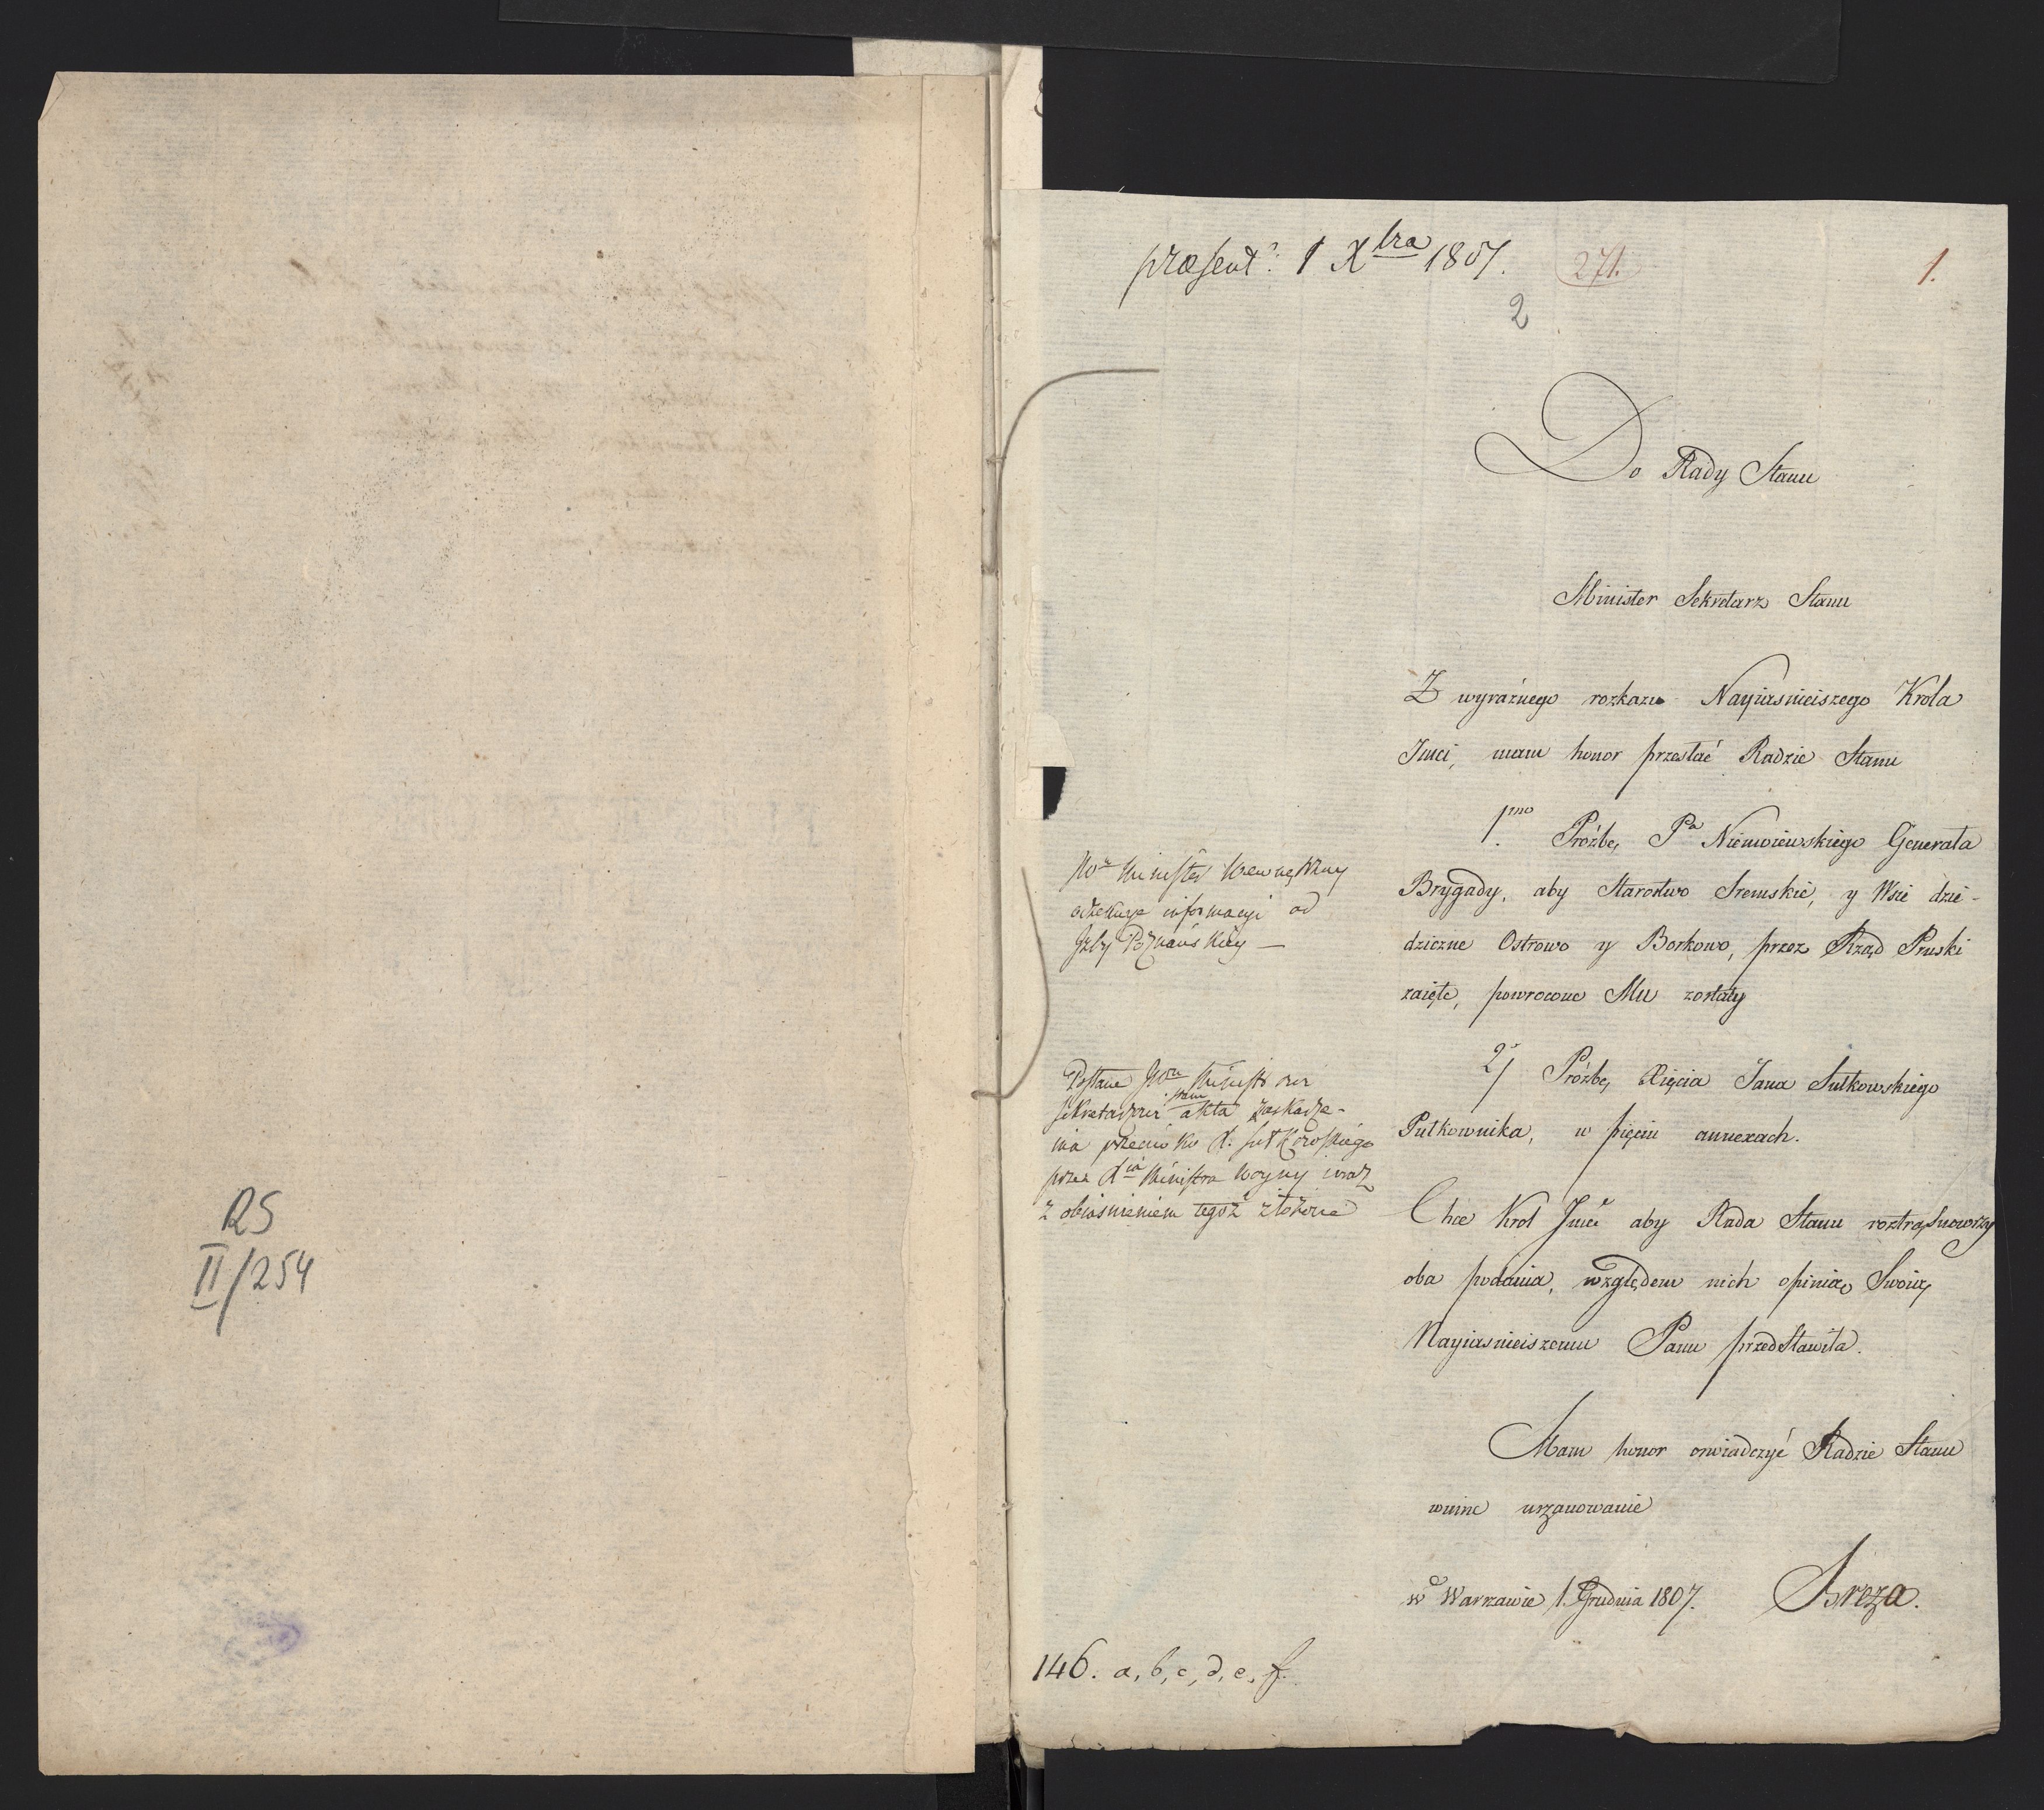 RS
II/254
præsent: 1 Xbra 1807.
271.
1.
2
Do Rady Stanu
Minister Sekretarz Stanu
Z wyraźnego rozkazu Nayiasnieiszego Krola
Jmci, mam honor przesłać Radzie Stanu
1mo Prożbę Pa Niemoiewskiego Generała
Brygady, aby Starostwo Sremskie, y Wsie dzie-
dziczne Ostrowo y Borkowo, przez Rząd Pruski
zaięte, powrocone Mu zostały
2) Prożbę Xięcia Jana Sułkowskiego
Pułkownika, w pięciu annexach.
Chce Krol Jmć aby Rada Stanu roztrząsnowszy
oba podania, względem nich opinią Swoią
Nayiasnieiszemu Panu przedstawiła.
Mam honor oswiadczyć Radzie Stanu
winne uszanowanie
w Warszawie 1. Grudnia 1807. Breza.
JWn Minister Wewnętrzny
oczekuje informacyi od
Izby Poznańskiey —
JWmu Ministrowi
Sekretarzowi akta zaskarże-
nia przeciwko X. Sułkowskiego
przez Xcia Ministra Woyny wraz
z obiasnieniem tegoż złożone
146. a, b, c, d, e, f.